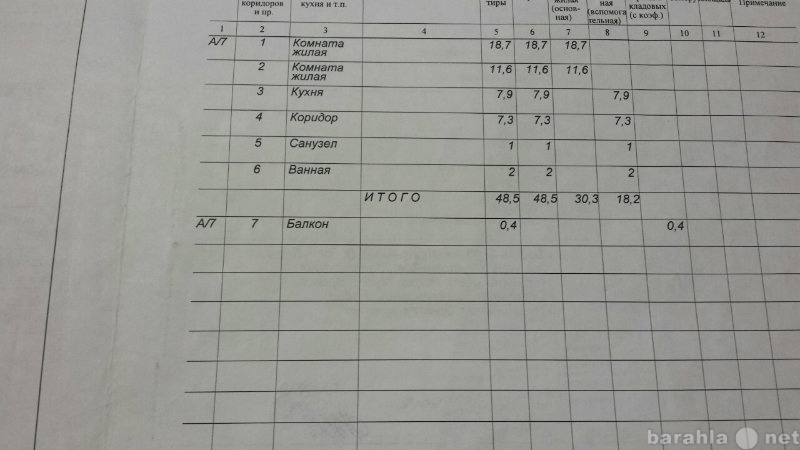 коридоров
и пр.
кухня и т.п.
тиры
жилая
(основ-
ная)
ная
(вспомога
тельная)
кладовых
(с коэф.)
Примечание
1 2 3 4 5 6 7 8 9 10 11 12
А/7 1 Комната жилая 18,7 18,7 18,7
2 Комната жилая 11,6 11,6 11,6
3 Кухня 7,9 7,9 7,9
4 Коридор 7,3 7,3 7,3
5 Санузел 1 1 1
6 Ванная 2 2 2
ИТОГО 48,5 48,5 30,3 18,2
А/7 7 Балкон 0,4 0,4
barahla net